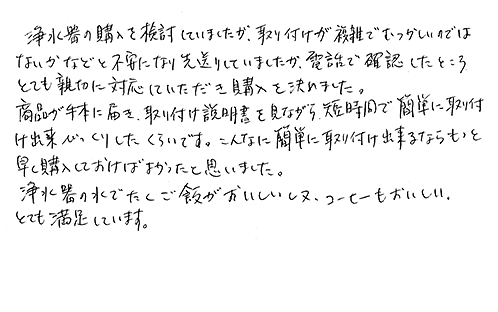 浄水器の購入を検討していましたが、取り付けが複雑でむつかしいのでは
ないかなどと不安になり先送りしていましたが、電話で確認したところ
とても親切に対応していただき購入を決めました。
商品が手本に届き、取り付け説明書を見ながら、短時間で簡単に取り付
け出来びっくりしたくらいです。こんなに簡単に取り付け出来るならもっと
早く購入しておけばよかったと思いました。
浄水器の水でたくご飯がおいしいしヌ、コーヒーもおいしい、
とても満足しています。